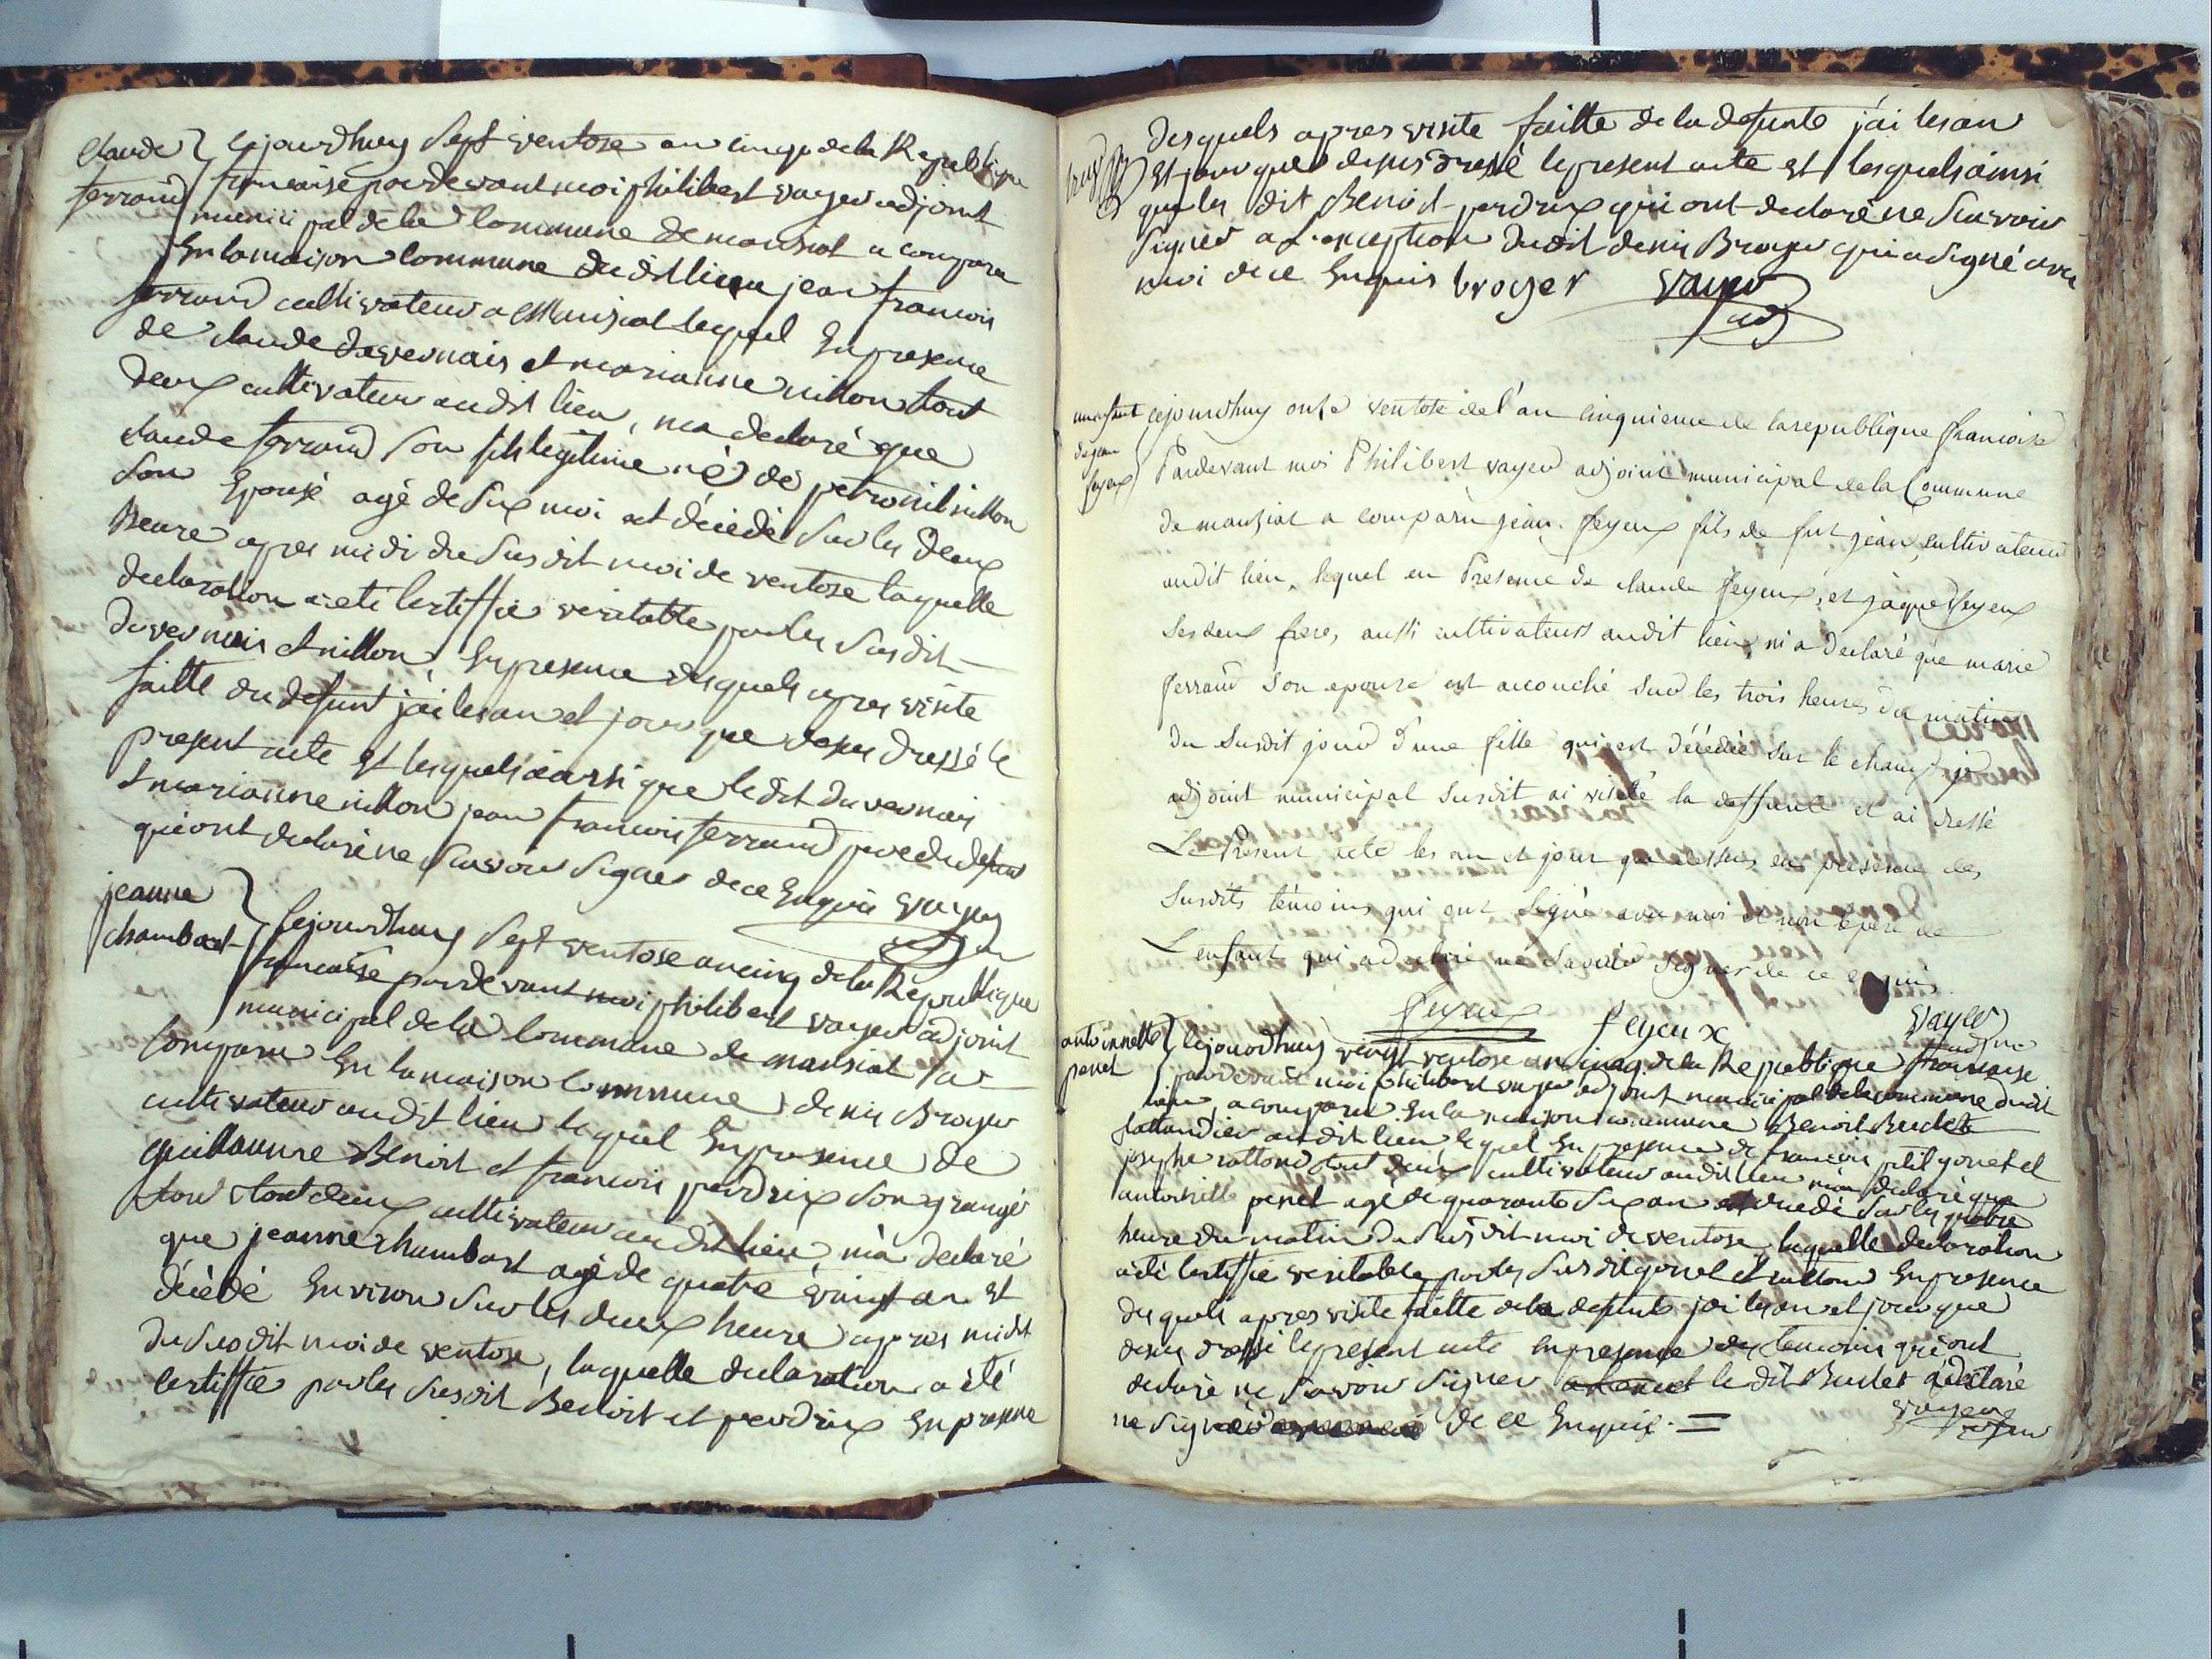 claude
ferrand
Cejourdhuy Sept ventose an cinq de la Republique
francaise pardevant moi philibert vayer adjoint
municipal de la Commune de mansiat a comparu
En la maison Commune dudit lieu jean francois
ferrand cultivateur a Mansiat lequel En presence
de claude duvernais et marianne nillon tout
deux cultivateur audit lieu, ma declaré que
claude ferrand Son fils legitime né de petronil nillon
Son Epouse agé de Six moi est décédé Sur les deux
heure apres midi du Susdit moi de ventose laquelle
declaration a eté Certiffié veritable par les Susdit
duvernais et nillon, En presence desquels apres visite
faitte du defunt j'ai les an et jour que desus dressé le
present acte Et lesquels ainsi que ledit duvernais
et marianne nillon jean francois ferrand pere du defunt
qui ont declaré ne Savoir Signer de ce Enquis vayer
jeanne
chambart
Cejourdhuy Sept ventose an cinq de la Republique
francaise pardevant moi philibert vayer adjoint
municipal de la Commune de mansiat a
Comparu En la maison Commune denis Broyer
cultivateur audit lieu lequel En presence de
guillaume Benoit et francois perdrix Son grangé
tout deux cultivateur audit lieu, m'a declaré
que jeanne chambart agé de quatre vingt an Et
décédé Environ Sur les deux heure apres midi
du Susdit moi de ventose, laquelle declaration a été
Certiffié par les Susdit Benoit et perdrix En presence
desquels apres visite faitte de la defunte j'ai les an
Et jour que desus dressé le present acte Et lesquels ainsi
que les dit Benoit perdrix qui ont declaré ne Savoir
Signer a L'exception dudit denis Broyer qui a Signé avec
moi de ce Enquis broyer vayer
adj
un enfant
de jean
feyeux
Cejourdhuy onze ventose de l'an cinquieme de la republique francoise
Pardevant moi Philibert vayer adjoint municipal de la Commune
de mansiat a comparu jean feyeux fils de fut jean, cultivateur
audit lieu, lequel en Presence de claude feyeux, et jaque feyeux
Ses deux frere, aussi cultivateurs audit lieu, m'a declaré que marie
ferrand Son epouse est accouché Sur les trois heures du matin
du Susdit jour d'une fille qui est décédée Sur le champ je
adjoint municipal Susdit ai visité la deffunte et ai dressé
Le Present acte les an et jour que dessus, en presence des
Susdits témoins qui ont Signé avec moi et non le pere de
L'enfant qui a declaré ne Savoir Signer de ce enquis
feyeux feyeux vayer
antoinette
penet
Cejourdhuy vingt ventose an cinq de la Republique francaise
pardevant moi philibert vayer adjoint municipal de la commune dudit
lieu, a comparu En la maison commune Benoit Burdet
audit lieu lequel En presence de francois petit gonet et
josephe rattond tout deux cultivateur audit lieu m'a declaré que
antoinette penet agé de quarante Six an est décédé Sur les quatre
heure du matin du Susdit moi de ventose, laquelle declaration
a été Certiffié veritable par les Susdit gonet et rattond En presence
des quels apres visite faitte de la defunte j'ai les an et jour que
desus dressé le present acte En presence des temoins qui ont
declaré ne Savoir Signer le dit Burdet a declaré
ne Signer de ce Enquis. =
vayer